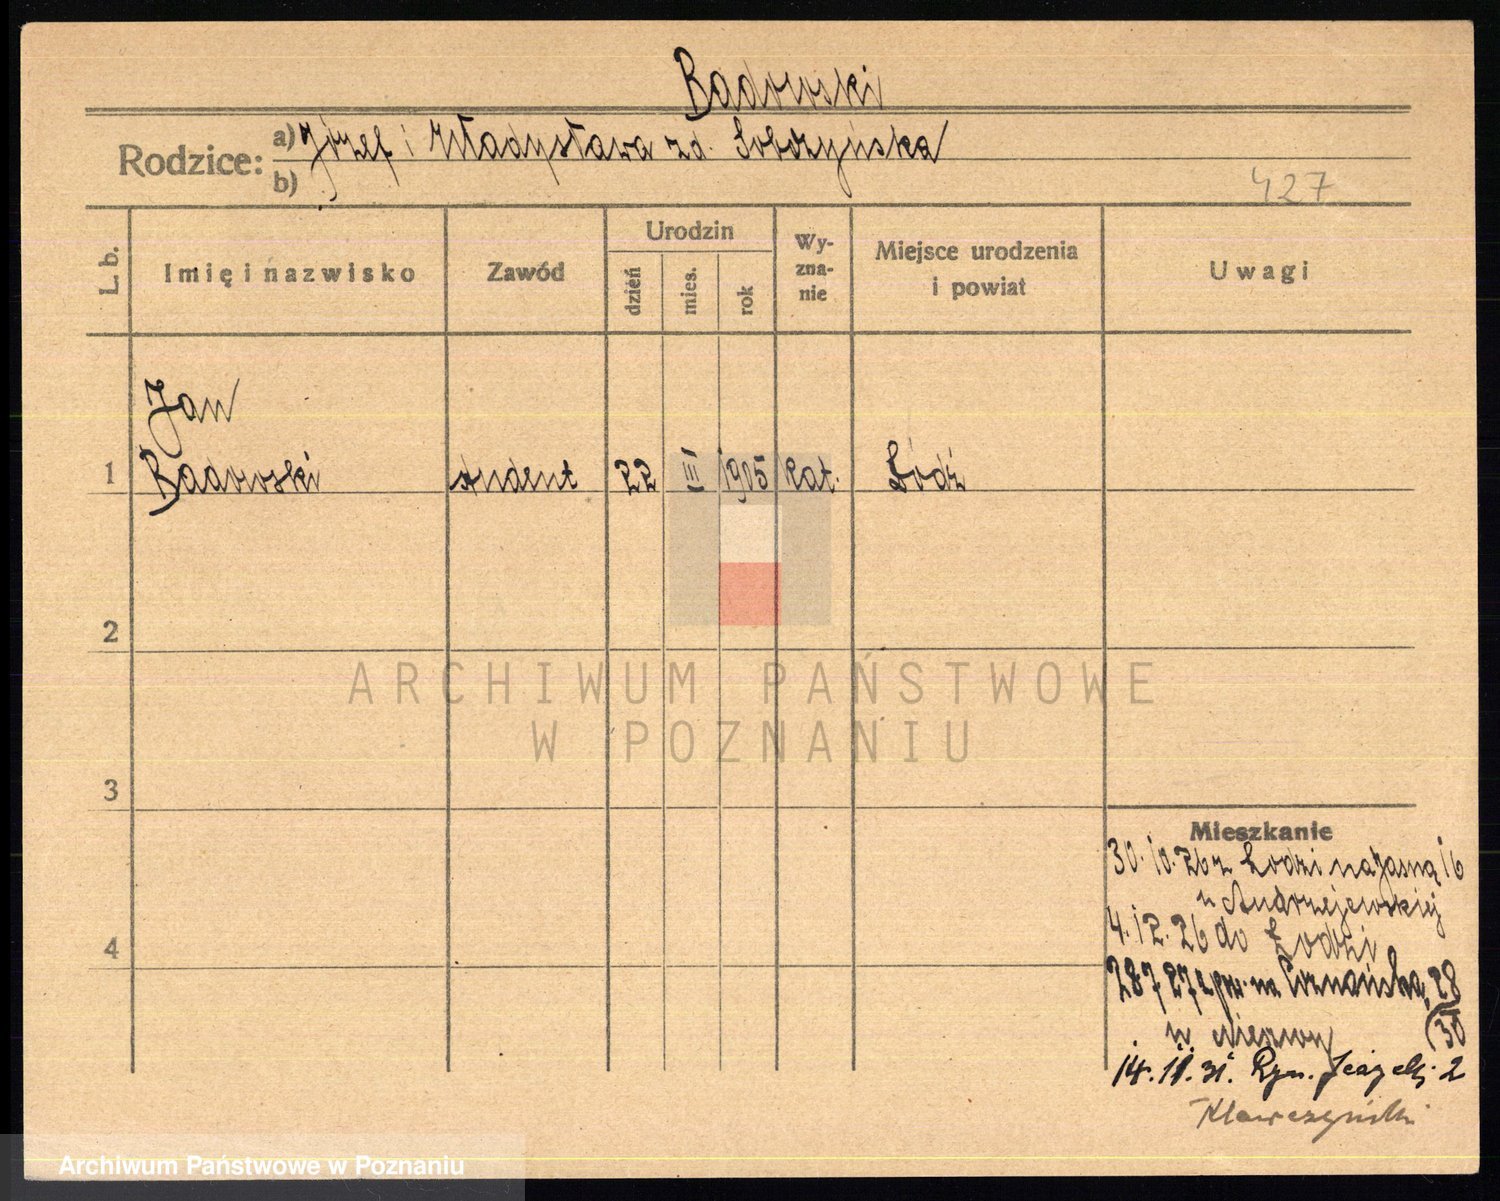 Badowski
Rodzice: a) Józef i Władysława zd. Sobczyńska
b)
427
L. b.
Imię i nazwisko
Zawód
Urodzin
dzień
mies.
rok
Wy-
zna-
nie
Miejsce urodzenia
i powiat
Uwagi
Jan
1 Badowski student 22 III 1905 kat. Łódź
2
ARCHIWUM PAŃSTWOWE
W POZNANIU
3
Mieszkanie
30.10.26 z Łodzi na Jasną 16
u Andrzejewskiej
4
4.12.26 do Łodzi
28 7 27 na Poznańską 28
(30
u
14.11.31. Ryn. Jeżycki 2
Archiwum Państwowe w Poznaniu